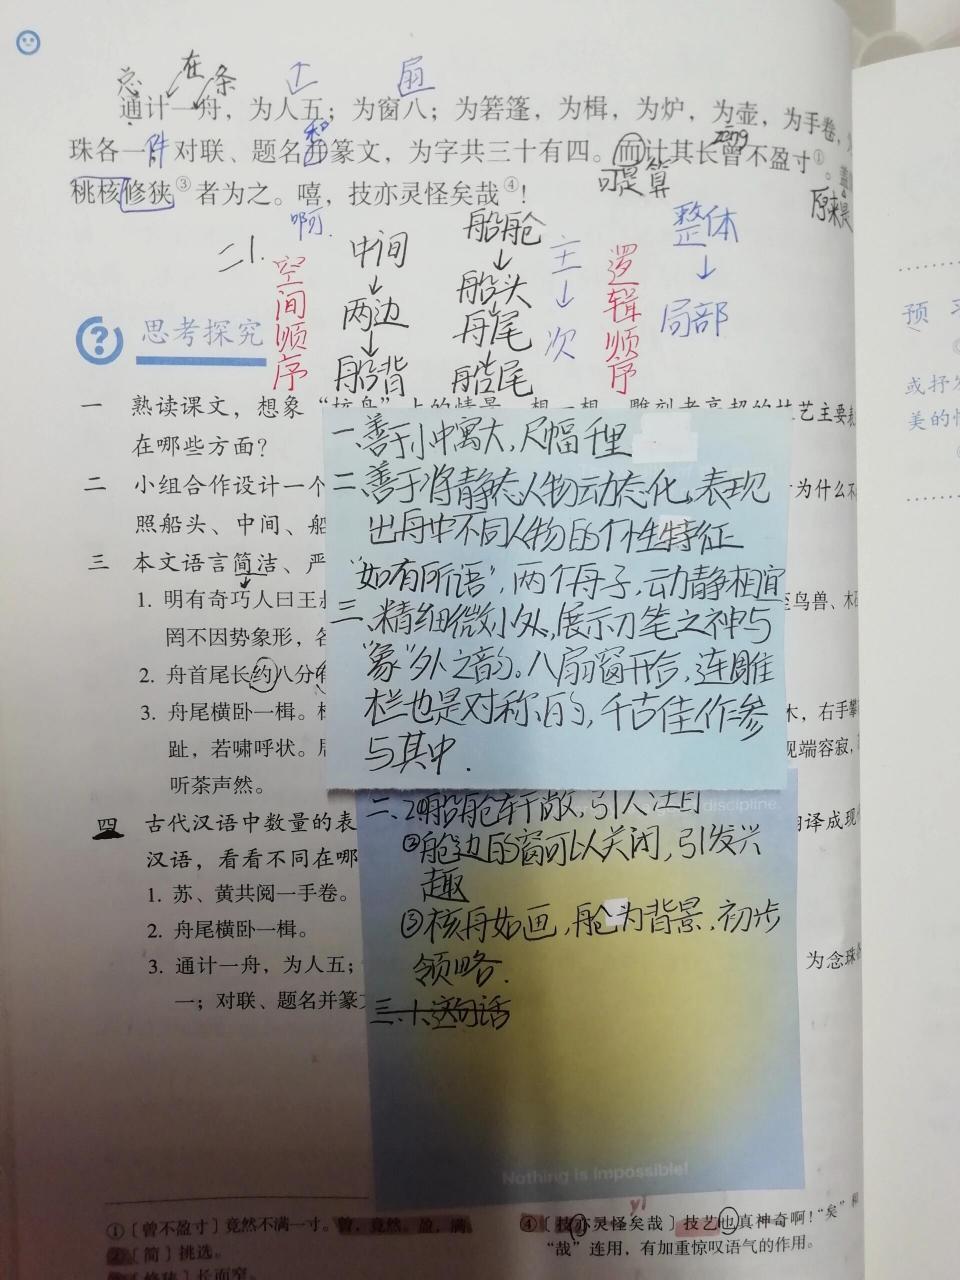 总 在 条 个 扇
通计一舟，为人五；为窗八；为箬篷，为楫，为炉，为壶，为手卷，
和 zēng
珠各一 件 对联、题名并篆文，为字共三十有四。而计其长曾不盈寸①。盖
可是 算 原来是
桃核修狭③者为之。嘻，技亦灵怪矣哉④！
啊
二 1.
空间顺序
中间→两边→船背
船舱→船头→舟尾
船尾
主→次
逻辑顺序
整体→局部
思考探究
一 熟读课文，想象“核舟”上的情景，想一想，雕刻者高超的技艺主要表
在哪些方面？
二 小组合作设计一个
为什么不
照船头、中间、船
三 本文语言简洁、严
1. 明有奇巧人曰王叔
至鸟兽、木石
罔不因势象形，各
2. 舟首尾长约八分有
3. 舟尾横卧一楫。楫
木，右手攀
趾，若啸呼状。居
视端容寂，
听茶声然。
四 古代汉语中数量的表
翻译成现代
汉语，看看不同在哪
1. 苏、黄共阅一手卷。
2. 舟尾横卧一楫。
3. 通计一舟，为人五；
为念珠各
一；对联、题名并篆文
一、善于小中寓大，尺幅千里
二、善于将静态人物动态化，表现
出舟中不同人物的个性特征
“如有所语”，两个舟子，动静相宜
三、精细微小处，展示刀笔之神与
“象”外之韵。八扇窗开合，连雕
栏也是对称的，千古佳作参
与其中.
二、2.①船舱轩敞，引人注目
discipline.
②舱边的窗可以关闭，引发兴
趣
③核舟如画，舱为背景，初步
领略.
三、1、这句话
Nothing is Impossible!
①〔曾不盈寸〕竟然不满一寸。曾，竟然。盈，满。
②〔简〕挑选。
③〔修狭〕长而窄。
yì
④〔技亦灵怪矣哉〕技艺也真神奇啊！“矣”和
“哉”连用，有加重惊叹语气的作用。
预 习
或抒发
美的情